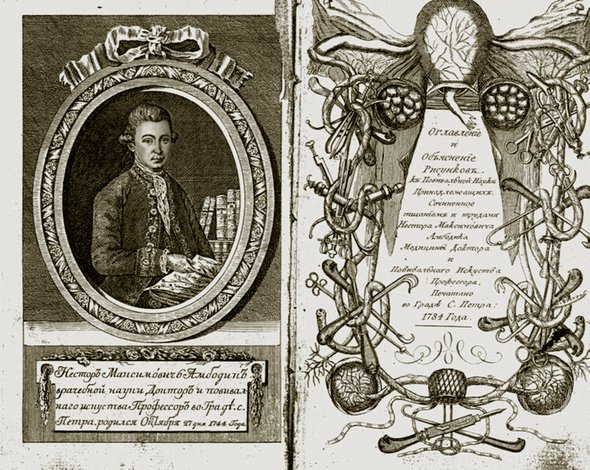 Несторъ Максимовичъ Амбодикъ
врачебной науки Докторъ и повивал-
наго искуства Профессоръ во Градѣ. с.
Петра, родился Октября 27 дня 1744 Года.
Оглавленіе
и
Объясненіе
Рисунковъ,
къ Повивальной Науки
Принадлежащихъ.
Сочиненное
тщаніемъ и трудами
Нестора Максимовича
Амбодика,
Медицины Доктора
и
Повивальнаго Искуства
Профессора.
Печатано
во Градѣ С. Петра:
1784 Года.